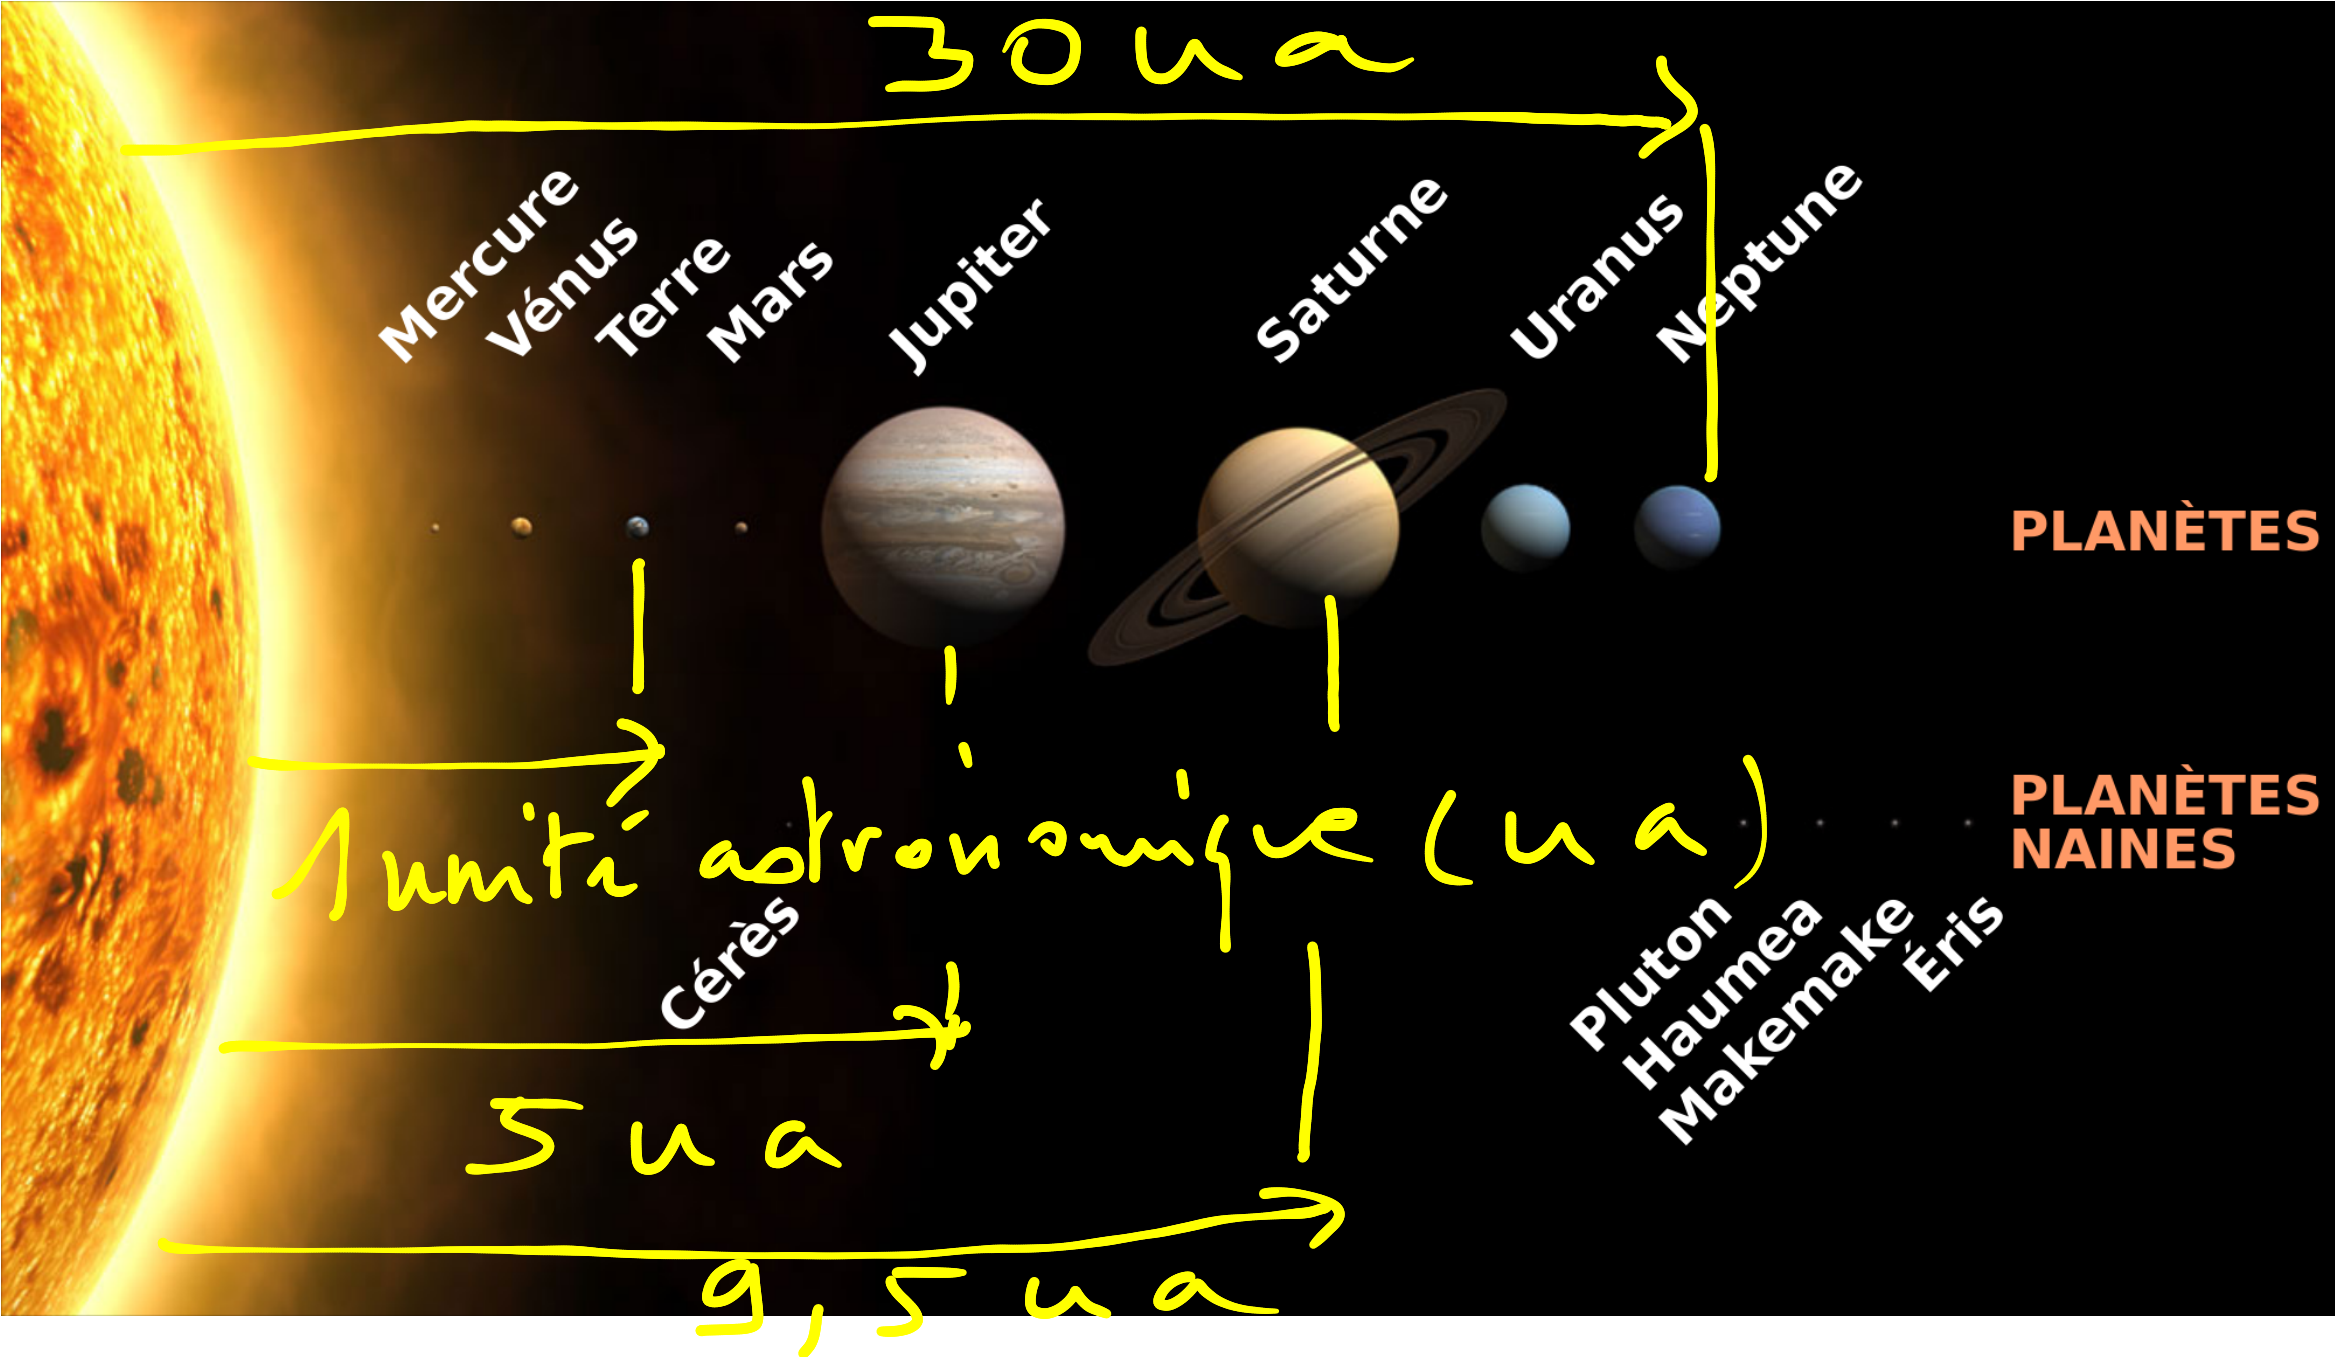 30 ua
Mercure
Vénus
Terre
Mars
Jupiter
Saturne
Uranus
Neptune
PLANÈTES
1 unité astronomique (ua)
PLANÈTES
NAINES
Cérès
Pluton
Haumea
Makemake
Éris
5 ua
9,5 ua